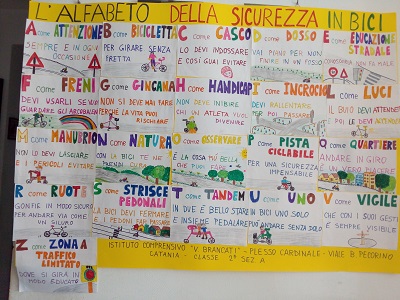 L'ALFABETO DELLA SICUREZZA IN BICI
A come ATTENZIONE
SEMPRE E IN OGNI
OCCASIONE
B come BICICLETTA
PER GIRARE SENZA
FRETTA
C come CASCO
LO DEVI INDOSSARE
E COSÌ GUAI EVITARE
D come DOSSO
VAI PIANO PER NON
FINIRE IN UN FOSSO
E come EDUCAZIONE
STRADALE
NON FA MALE
F come FRENI
DEVI USARLI SE VUOI
GUARDARE GLI ARCOBALENI
G come GINCANA
NON SI DEVE MAI FARE
PERCHÉ LA VITA PUOI
RISCHIARE
H come HANDICAP
NON DEVE INIBIRE
CHI UN ATLETA VUOL
DIVENIRE
I come INCROCIO
DEVI RALLENTARE
PER POI PASSARE
L come LUCI
IL BUIO DEVI ATTENDERE
M come MANUBRIO
NON LO DEVI LASCIARE
E I PERICOLI EVITARE
N come NATURA
CON LA BICI TE NE
O come OSSERVARE
È LA COSA PIÙ BELLA
P come PISTA
CICLABILE
PER UNA SICUREZZA
Q come QUARTIERE
ANDARE IN GIRO
R come RUOTE
GONFIE IN MODO SICURO
PER ANDARE VIA COME
UN SILURO
S come STRISCE
PEDONALI
LA BICI DEVI FERMARE
E I PEDONI FAR PASSARE
T come TANDEM
IN DUE È BELLO STARE
E INSIEME PEDALARE
U come UNO
IN BICI UNO SOLO
ANDARE SENZA
V come VIGILE
CHE CON I SUOI GESTI
È SEMPRE VISIBILE
Z come ZONA A
TRAFFICO
LIMITATO
DOVE SI GIRA IN
MODO EDUCATO
ISTITUTO COMPRENSIVO "V. BRANCATI" - PLESSO CARDINALE - VIALE B. PECORINO
CATANIA - CLASSE 2ª SEZ. A